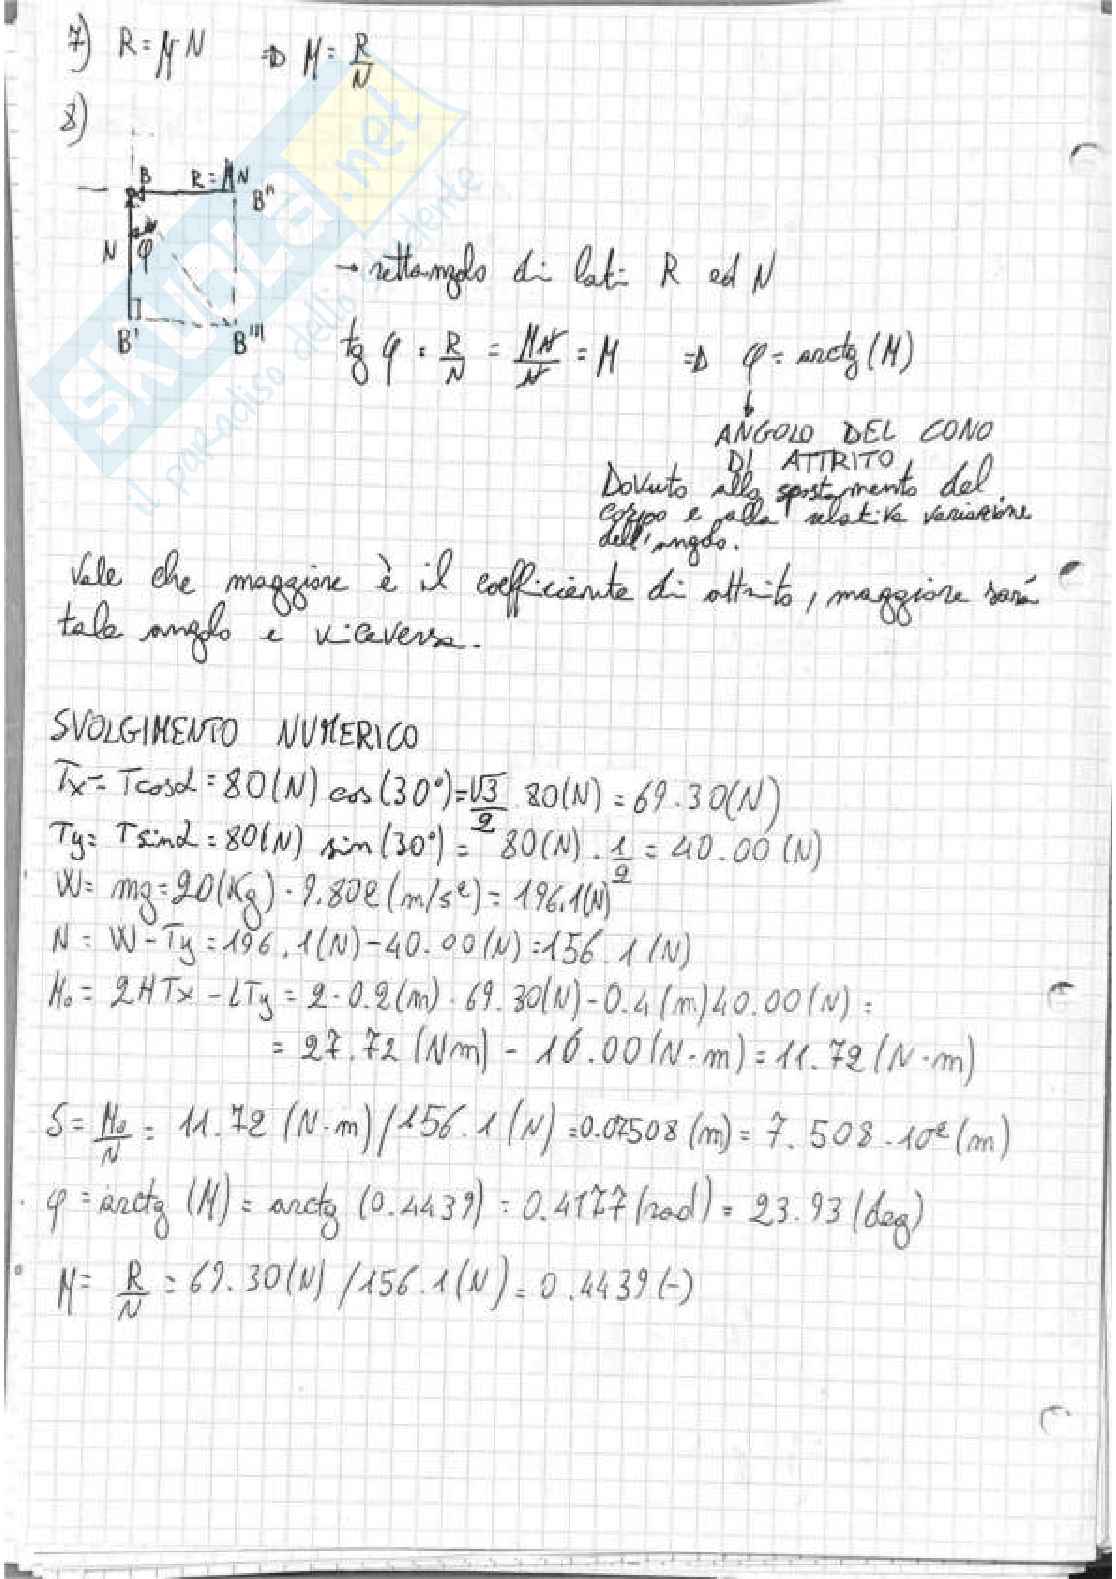 7) R = μN ⇒ μ = R/N
8)
B R = μN B''
N φ
B' B'''
→ rettangolo di lati R ed N
tg φ = R/N = μN/N = μ ⇒ φ = arctg(μ)
ANGOLO DEL CONO
DI ATTRITO
Dovuto allo spostamento del
corpo e alla relativa variazione
dell'angolo.
Vale che maggiore è il coefficiente di attrito, maggiore sarà
tale angolo e viceversa.
SVOLGIMENTO NUMERICO
Tx = Tcosα = 80(N) cos(30°) = √3/2 80(N) = 69.30(N)
Ty = Tsinα = 80(N) sin(30°) = 80(N) · 1/2 = 40.00(N)
W = mg = 20(Kg) · 9.802(m/s²) = 196.1(N)
N = W - Ty = 196.1(N) - 40.00(N) = 156.1(N)
M₀ = 2HTx - LTy = 2·0.2(m)·69.30(N) - 0.4(m)40.00(N) =
= 27.72(Nm) - 16.00(N·m) = 11.72(N·m)
S = M₀/N = 11.72 (N·m)/156.1(N) = 0.07508(m) = 7.508·10²(m)
φ = arctg(μ) = arctg(0.4439) = 0.4177(rad) = 23.93(deg)
μ = R/N = 69.30(N)/156.1(N) = 0.4439(-)
SKUOLA.net
il paradiso dello studente